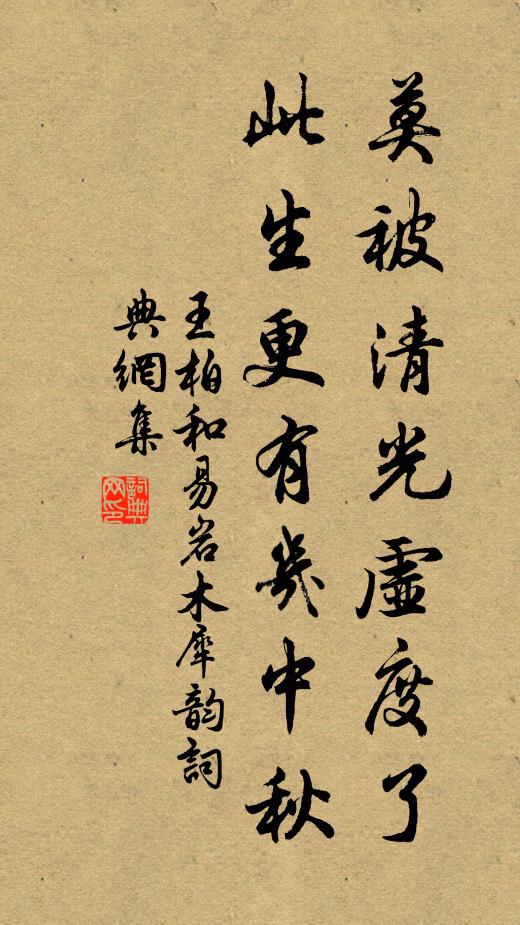 莫被清光虛度了
此生更有幾中秋
王柏和易岩木犀韵詞
典網集
詞典網印